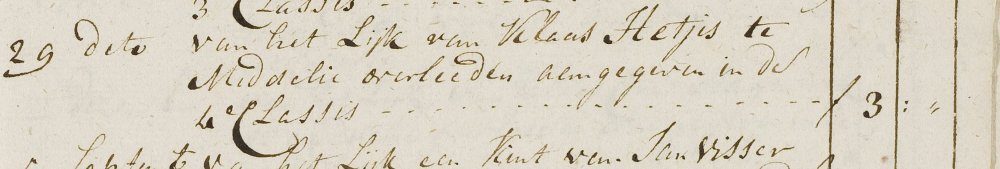 3 Classis - - - - - - -
29 dito van het Lijk van Klaas Hetjis te
Middelie overleeden aengegeven in de
4e Classis - - - - - - - - - - - - - - - - f 3 : "
het Lijk een Kint van Jan Visser